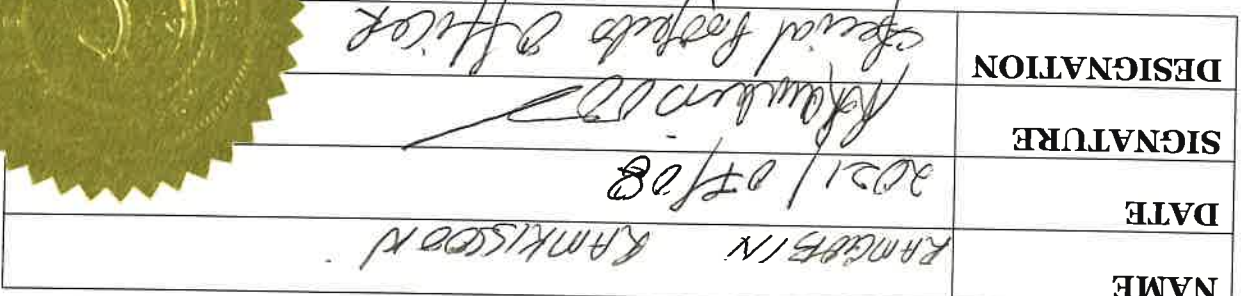 NAME RAMGOBIN RAMKISSOON
DATE 2021/07/08
SIGNATURE
DESIGNATION Special Projects Officer